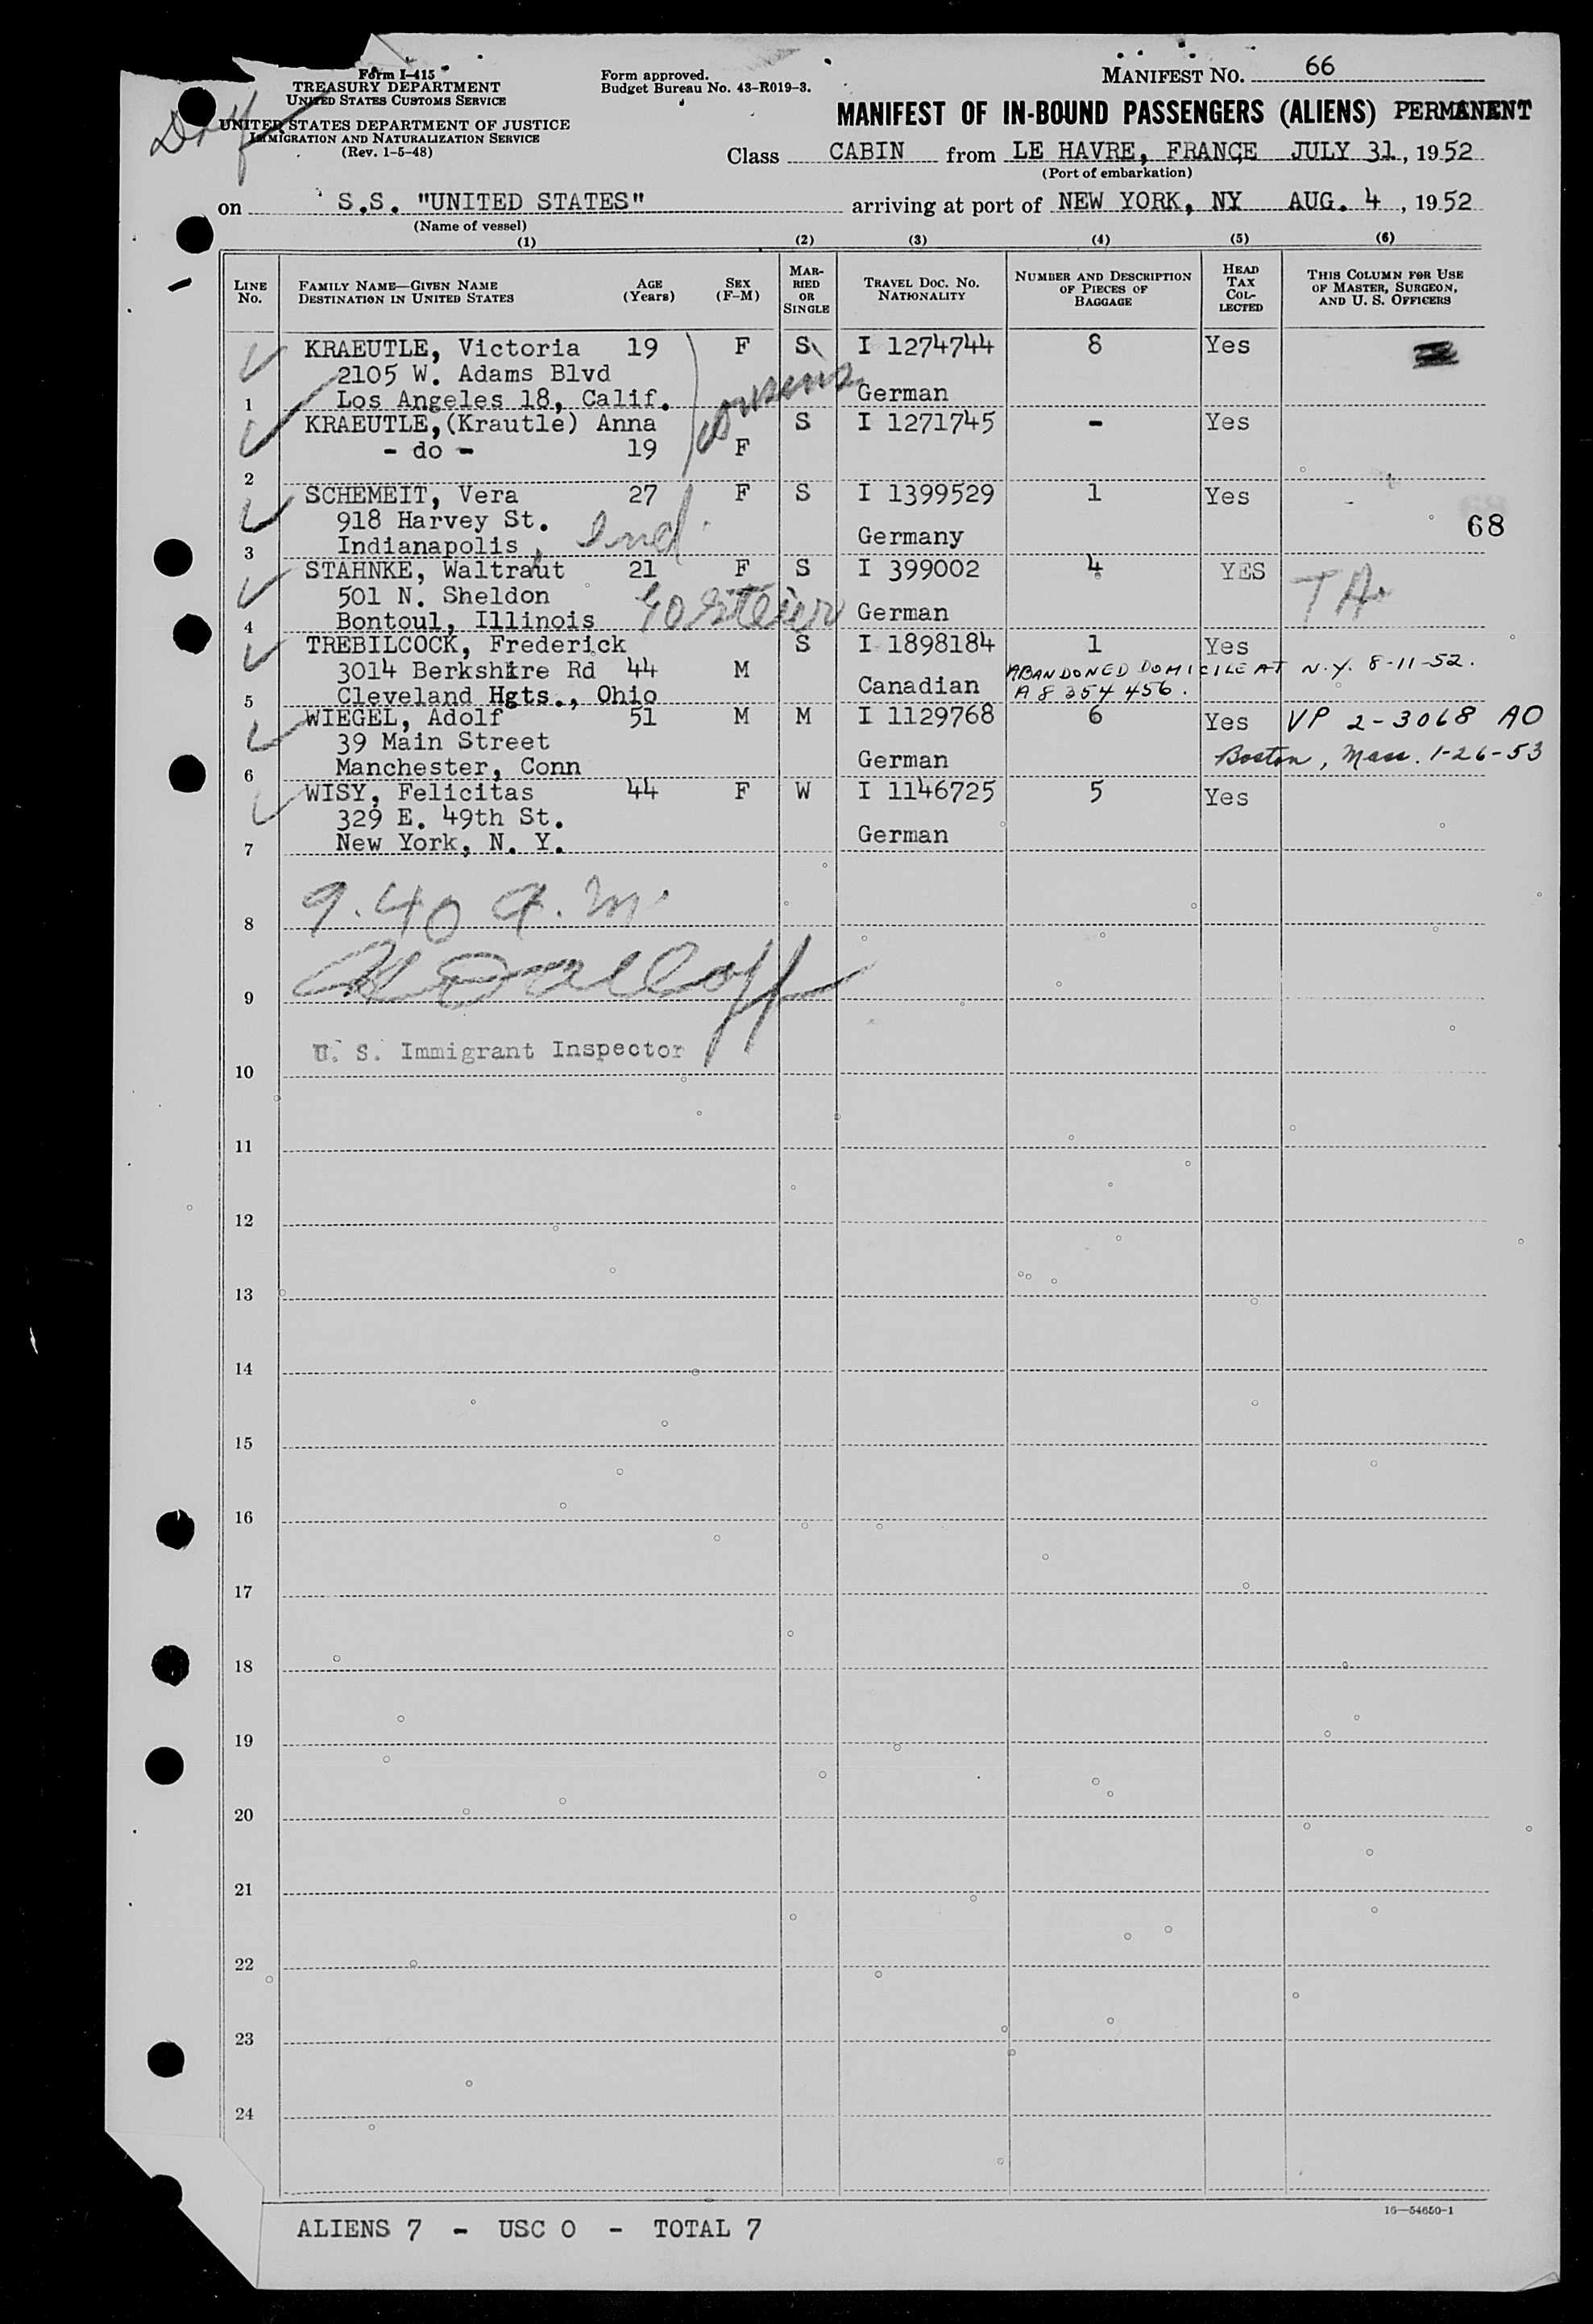 Form I-415
TREASURY DEPARTMENT
UNITED STATES CUSTOMS SERVICE
UNITED STATES DEPARTMENT OF JUSTICE
IMMIGRATION AND NATURALIZATION SERVICE
(Rev. 1-5-48)
Form approved.
Budget Bureau No. 43-R019-3.
MANIFEST NO. 66
MANIFEST OF IN-BOUND PASSENGERS (ALIENS) PERMANENT
Class CABIN from LE HAVRE, FRANCE JULY 31, 1952
(Port of embarkation)
on S.S. "UNITED STATES" arriving at port of NEW YORK, NY AUG. 4, 1952
(Name of vessel)
(1) (2) (3) (4) (5) (6)
LINE No. FAMILY NAME—GIVEN NAME DESTINATION IN UNITED STATES AGE (Years) SEX (F-M) MARRIED OR SINGLE TRAVEL DOC. NO. NATIONALITY NUMBER AND DESCRIPTION OF PIECES OF BAGGAGE HEAD TAX COLLECTED THIS COLUMN FOR USE OF MASTER, SURGEON, AND U. S. OFFICERS
KRAEUTLE, Victoria 19 F S I 1274744 8 Yes
2105 W. Adams Blvd cousins
1 Los Angeles 18, Calif. German
KRAEUTLE,(Krautle) Anna S I 1271745 - Yes
- do - 19 F
2
SCHEMEIT, Vera 27 F S I 1399529 1 Yes
918 Harvey St. 68
3 Indianapolis, Ind. Germany
STAHNKE, Waltraut 21 F S I 399002 4 YES
501 N. Sheldon TA
4 Bontoul, Illinois German
TREBILCOCK, Frederick S I 1898184 1 Yes
3014 Berkshire Rd 44 M ABANDONED DOMICILE AT N.Y. 8-11-52.
5 Cleveland Hgts., Ohio Canadian A 8 254 456.
WIEGEL, Adolf 51 M M I 1129768 6 Yes VP 2-3068 AO
39 Main Street Boston, Mass. 1-26-53
6 Manchester, Conn German
WISY, Felicitas 44 F W I 1146725 5 Yes
329 E. 49th St.
7 New York, N. Y. German
9.40 a.m.
8
9
U. S. Immigrant Inspector
10
11
12
13
14
15
16
17
18
19
20
21
22
23
24
16—54650-1
ALIENS 7 - USC 0 - TOTAL 7